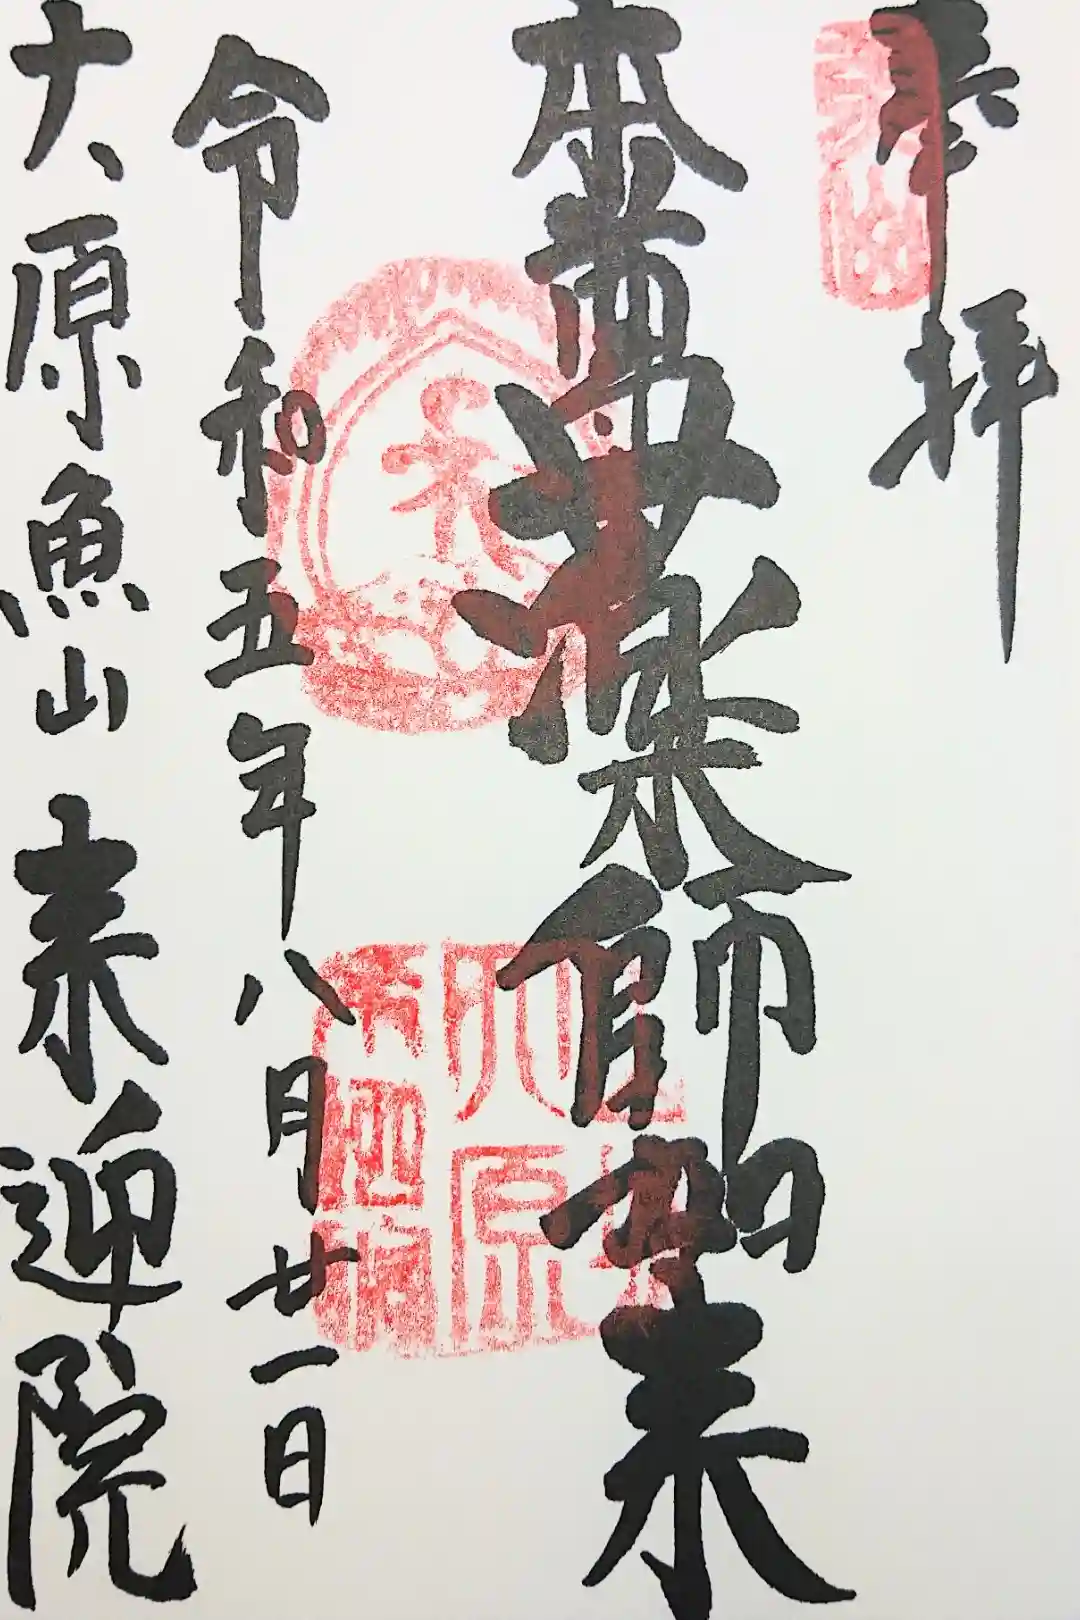 奉拝
本尊薬師如来
令和五年八月廿一日
大原魚山 来迎院